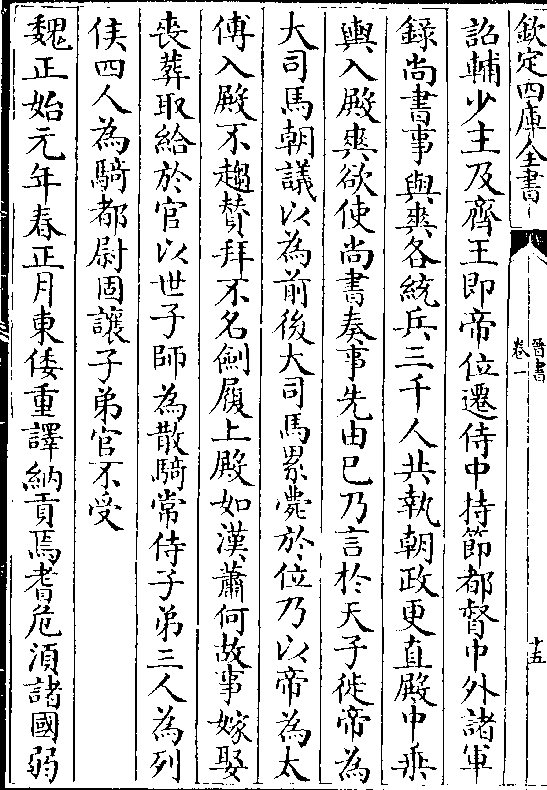 欽定四庫全書
晉書
卷一
十五
詔輔少主及齊王即帝位遷侍中持節都督中外諸軍
錄尚書事與爽各統兵三千人共執朝政更直殿中乗
輿入殿爽欲使尚書奏事先由已乃言於天子徙帝為
大司馬朝議以為前後大司馬累薨於位乃以帝為太
傅入殿不趨贊拜不名劍履上殿如漢蕭何故事嫁娶
喪葬取給於官以世子師為散騎常侍子弟三人為列
侯四人為騎都尉固讓子弟官不受
魏正始元年春正月東倭重譯納貢焉耆危須諸國弱